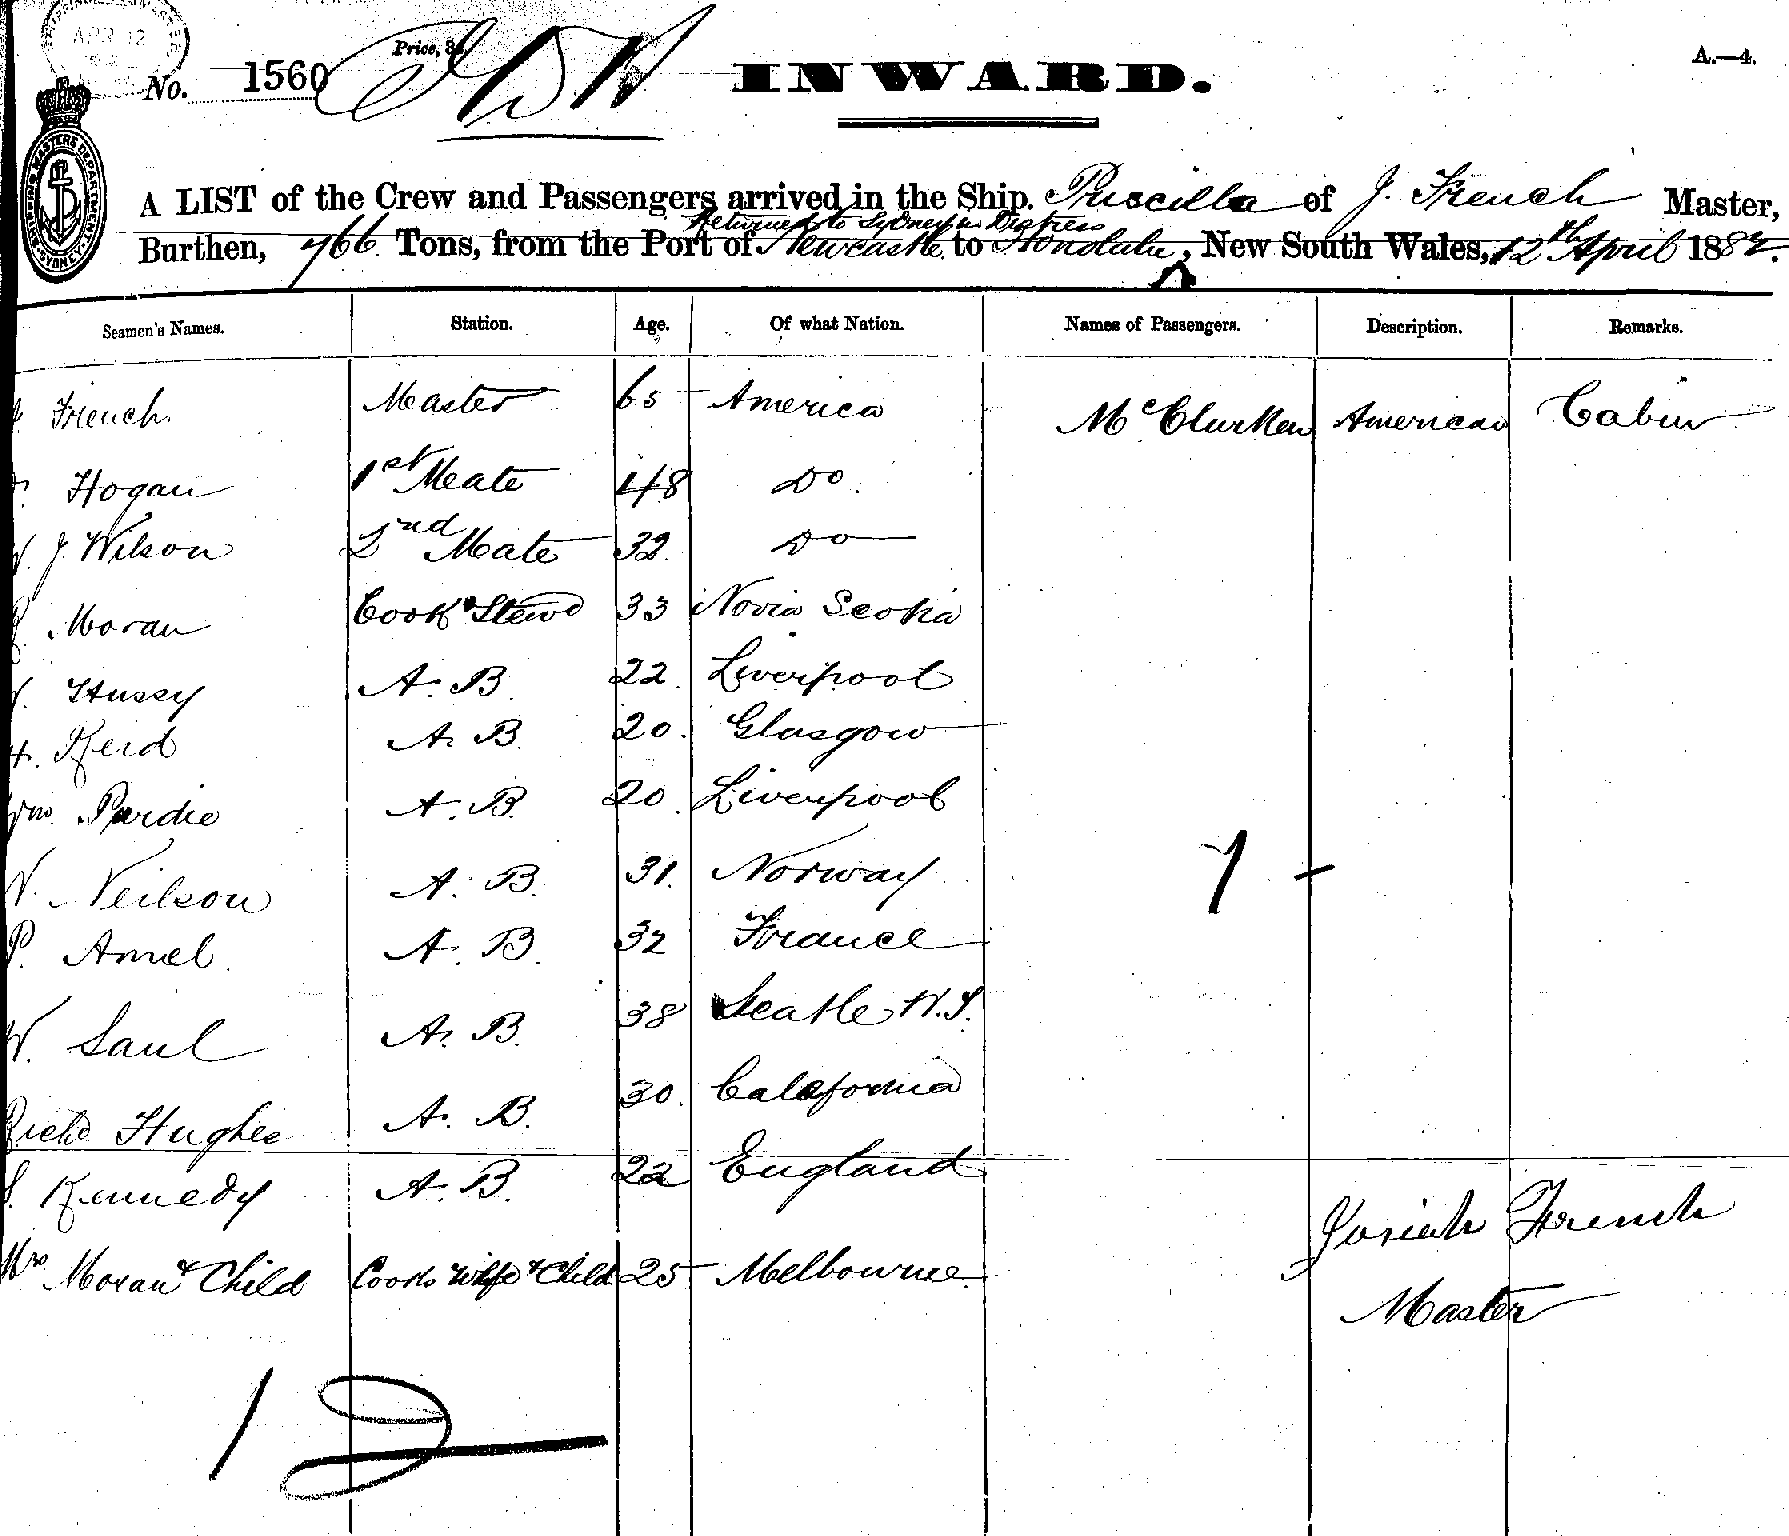 APR 12
No. 1560
Price, 3d.
INWARD.
A.—4.
SHIPPING MASTERS DEPARTMENT SYDNEY
A LIST of the Crew and Passengers arrived in the Ship. Priscilla of J. French Master,
Returned to Sydney in Distress
Burthen, 766 Tons, from the Port of Newcastle to Honolulu, New South Wales, 12th April 1882.
Seamen's Names. Station. Age. Of what Nation. Names of Passengers. Description. Remarks.
J French Master 65 America McClurken American Cabin
Hogan 1st Meate 48 Do.
W. J. Wilson 2nd Mate 32. Do
Moran Cook & Stewd 33 Novia Scotia
Hussy A. B. 22. Liverpool
H. Reid A. B. 20. Glasgow
Wm. Pardie A. B. 20. Liverpool
N. Neilson A. B. 31. Norway
P. Amel. A. B. 32 France
W. Saul A. B. 38 Seatle W.T.
Richd Hughes A. B. 30. California
Kennedy A. B. 22 England
Mrs Moran & Child Cooks Wife & Child 25 Melbourne
1
Josiah French
Master
12